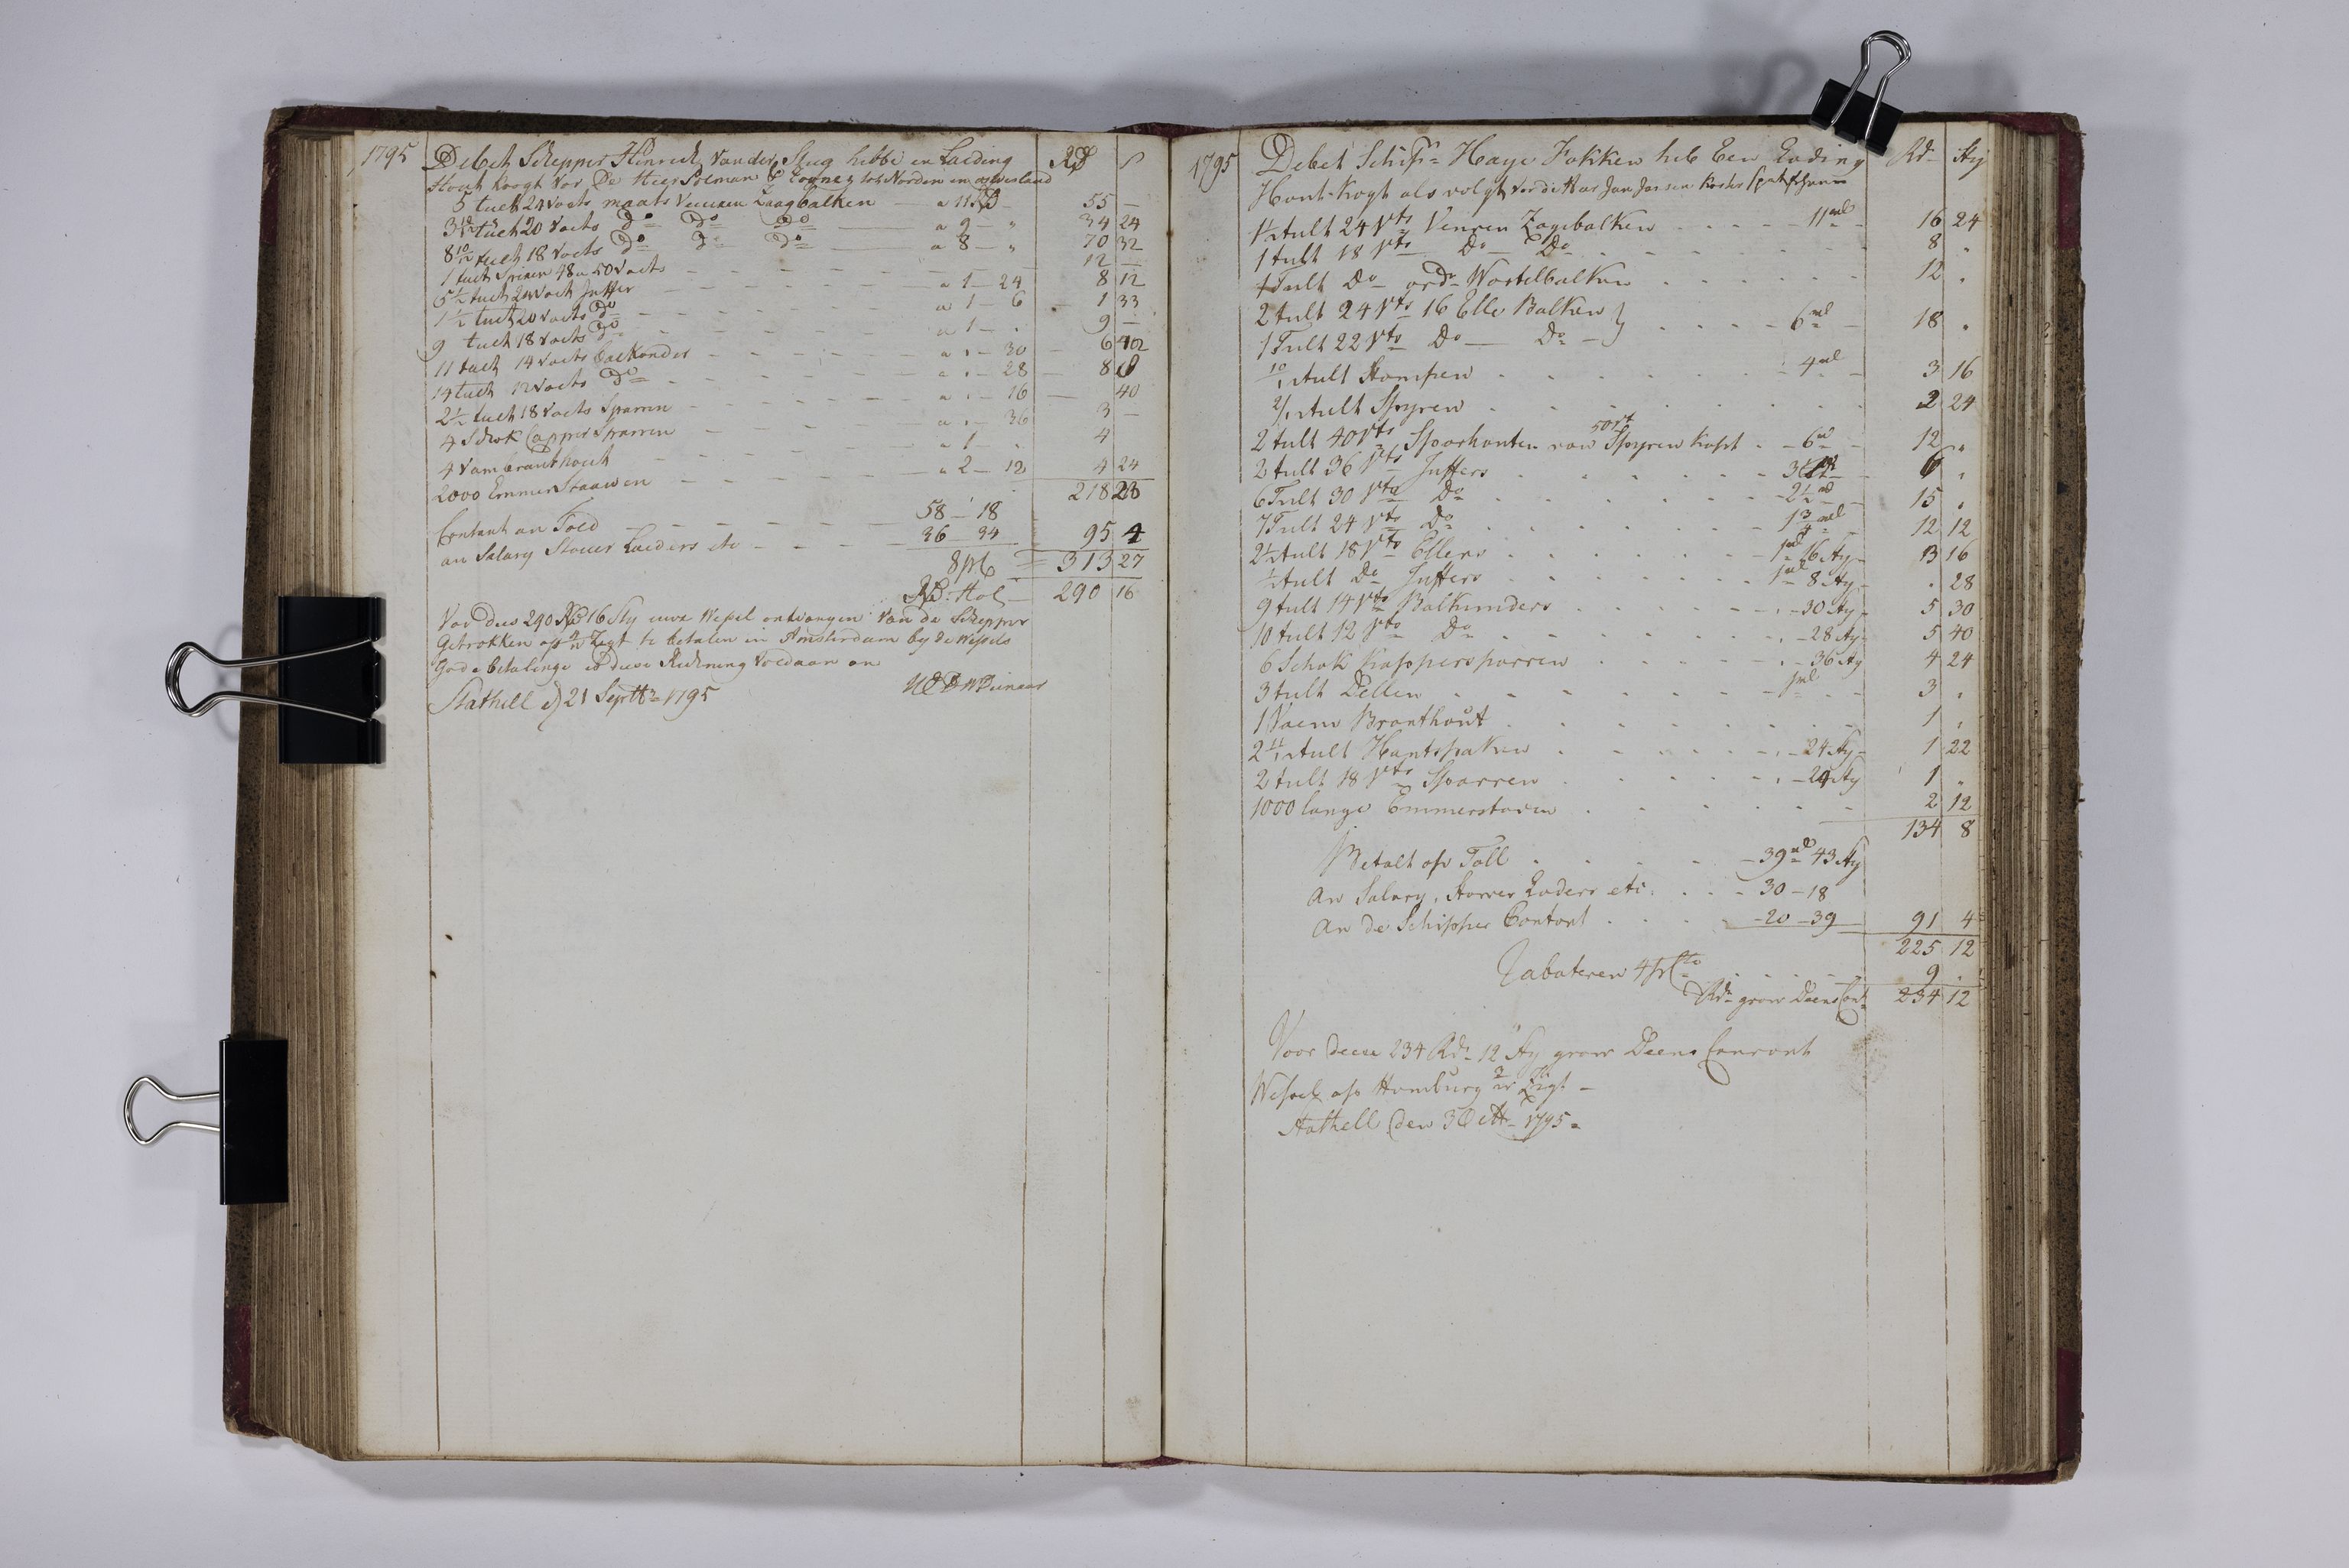 1795 Debet Schepper Hinrich van der Slug hebbe en Laeding Rd S
Hout kogt vor De Heer Poleman & Tot Norden in ostvriesland
5 tuelt 24 voets maats Veuuren Zaagbalken — a 11 Rd — 55 —
3 10/12 tuelt 20 voets Do Do Do — a 9 — " 34 24
8 10/12 tuelt 18 voets Do Do Do a 8 — " 70 32
1 tuelt Spiren 48 a 50 voets 12 —
5 1/2 tuelt 24 voets Juffer a 1 — 24 8 12
1 1/2 tuelt 20 voets Do a 1 — 6 — 1 33
9 tuelt 18 voets Do a 1 — . 9 —
11 tuelt 14 voets balkender a . — 30 — 6 42
14 tuelt 12 voets Do a . — 28 — 8 8
2 1/2 tuelt 18 voets Sparren a . — 16 — 40
4 Schok Capper Sparren a . — 36 3 —
4 Vam branthout a 1 — . 4
2000 Emmer Staawen a 2 — 12 4 24
218 23
Contant an Toed 58 — 18
an Salary Stouer Laeders etc 36 — 34 95 4
8 pC = 313 27
Rd: Hol — 290 16
Vor dese 290 Rd 16 Sty uwe Wesel ontvangen van de Schepper
Getrokken op 2/m Zegt te betalen in Amsterdam by de Wessels
Gode betalinge is dese Rekning Voldaan an
Stathell d) 21 Septbr 1795 UEDWDienaar
1795 Debet Schipr Haye Fokken heb Een Lading Rd Sty
Hout kogt als volgt vor de Haar Jan Jansen
1 1/2 tult 24 Vts Venren Zagebalken 11 rd 16 24
1 tult 18 Vts Do Do 8 .
1 Tult Do ord Wortelbalken 12 .
2 tult 24 Vts 16 Elle Balken }
1 Tult 22 Vts Do — Do — } 6 rd — 18 .
10/12 tult Stompen 4 rd 3 16
2/12 tult Spyren 2 24
2 tult 40 Vts Sparhouten van 50 vt Spyren kapt . — 6 rd 12 .
2 tult 36 Vts Juffers 3 rd 6 .
6 Tult 30 Vts Do 2 1/2 rd 15 .
7 Tult 24 Vts Do 1 3/4 rd 12 12
2 1/2 tult 18 Vts Ellers 1 rd 16 Sty 3 16
1/2 tult Do Juffers 1 rd 8 Sty . 28
9 tult 14 Vts Balkunders . — 30 Sty 5 30
10 tult 12 Vts Do . — 28 Sty 5 40
6 Schok Kappersparren . — 36 Sty 4 24
3 tult Dellen 1 rd 3 .
1 Vaem Branthout 1 .
2 11/12 tult Hantspaken . — 24 Sty 1 22
2 tult 18 Vts Sparren . — 24 Sty 1 .
1000 lange Emmerstaven 2 12
134 8
Betalt op Toll — 39 rd 43 Sty
an Salary, Stouer Laders etc. 30 — 18
an de Schipper Contant 20 — 39 91 4
225 12
Rabateren 4 pCto 9 .
Rd grow Deens Cort 234 12
Voor deese 234 Rd 12 Sty grow Deens Courant
Wessel op Hamburg 2 m Zegt —
Stathell den 3 Octbr 1795